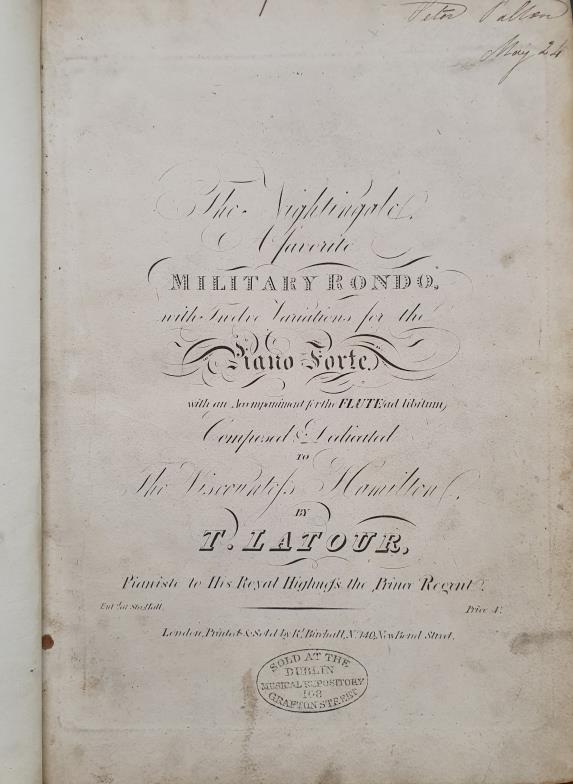 Peter
May 24
The Nightingale,
A favorite
MILITARY RONDO,
with Twelve Variations for the
Piano Forte,
with an Accompaniment for the FLUTE (ad libitum)
Composed & Dedicated
TO
The Viscountefs Hamilton,
BY
T. LATOUR,
Pianiste to His Royal Highnefs the Prince Regent.
Ent.d at Sta. Hall. Price 4/
London, Printed & Sold by R.t Birchall, No. 140, New Bond Street.
SOLD AT THE
DUBLIN
MUSICAL REPOSITORY
108
GRAFTON STREET